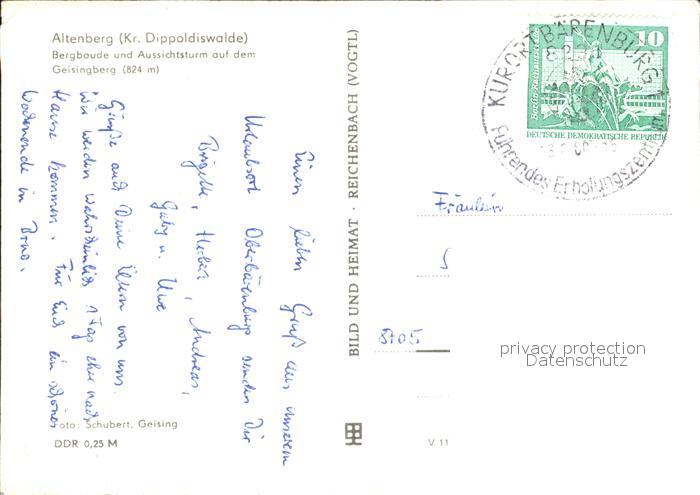 Altenberg (Kr. Dippoldiswalde)
Bergbaude und Aussichtsturm auf dem
Geisingberg (824 m)
Einen lieben Gruß aus unserem
Urlaubsort Oberbärenburg senden Dir
Brigitte, Herbert, Andreas,
Gaby u. Uwe
Grüße auch Deine Eltern von uns.
Wir werden wahrscheinlich 1 Tag eher nach
Hause kommen. Für Euch ein schönes
Wochenende in Brno.
Foto: Schubert, Geising
DDR 0,25 M
BILD UND HEIMAT · REICHENBACH (VOGTL)
V 11
KURORT BÄRENBURG
Führendes Erholungszentrum
10
DEUTSCHE DEMOKRATISCHE REPUBLIK
Fräulein
8705
privacy protection
Datenschutz